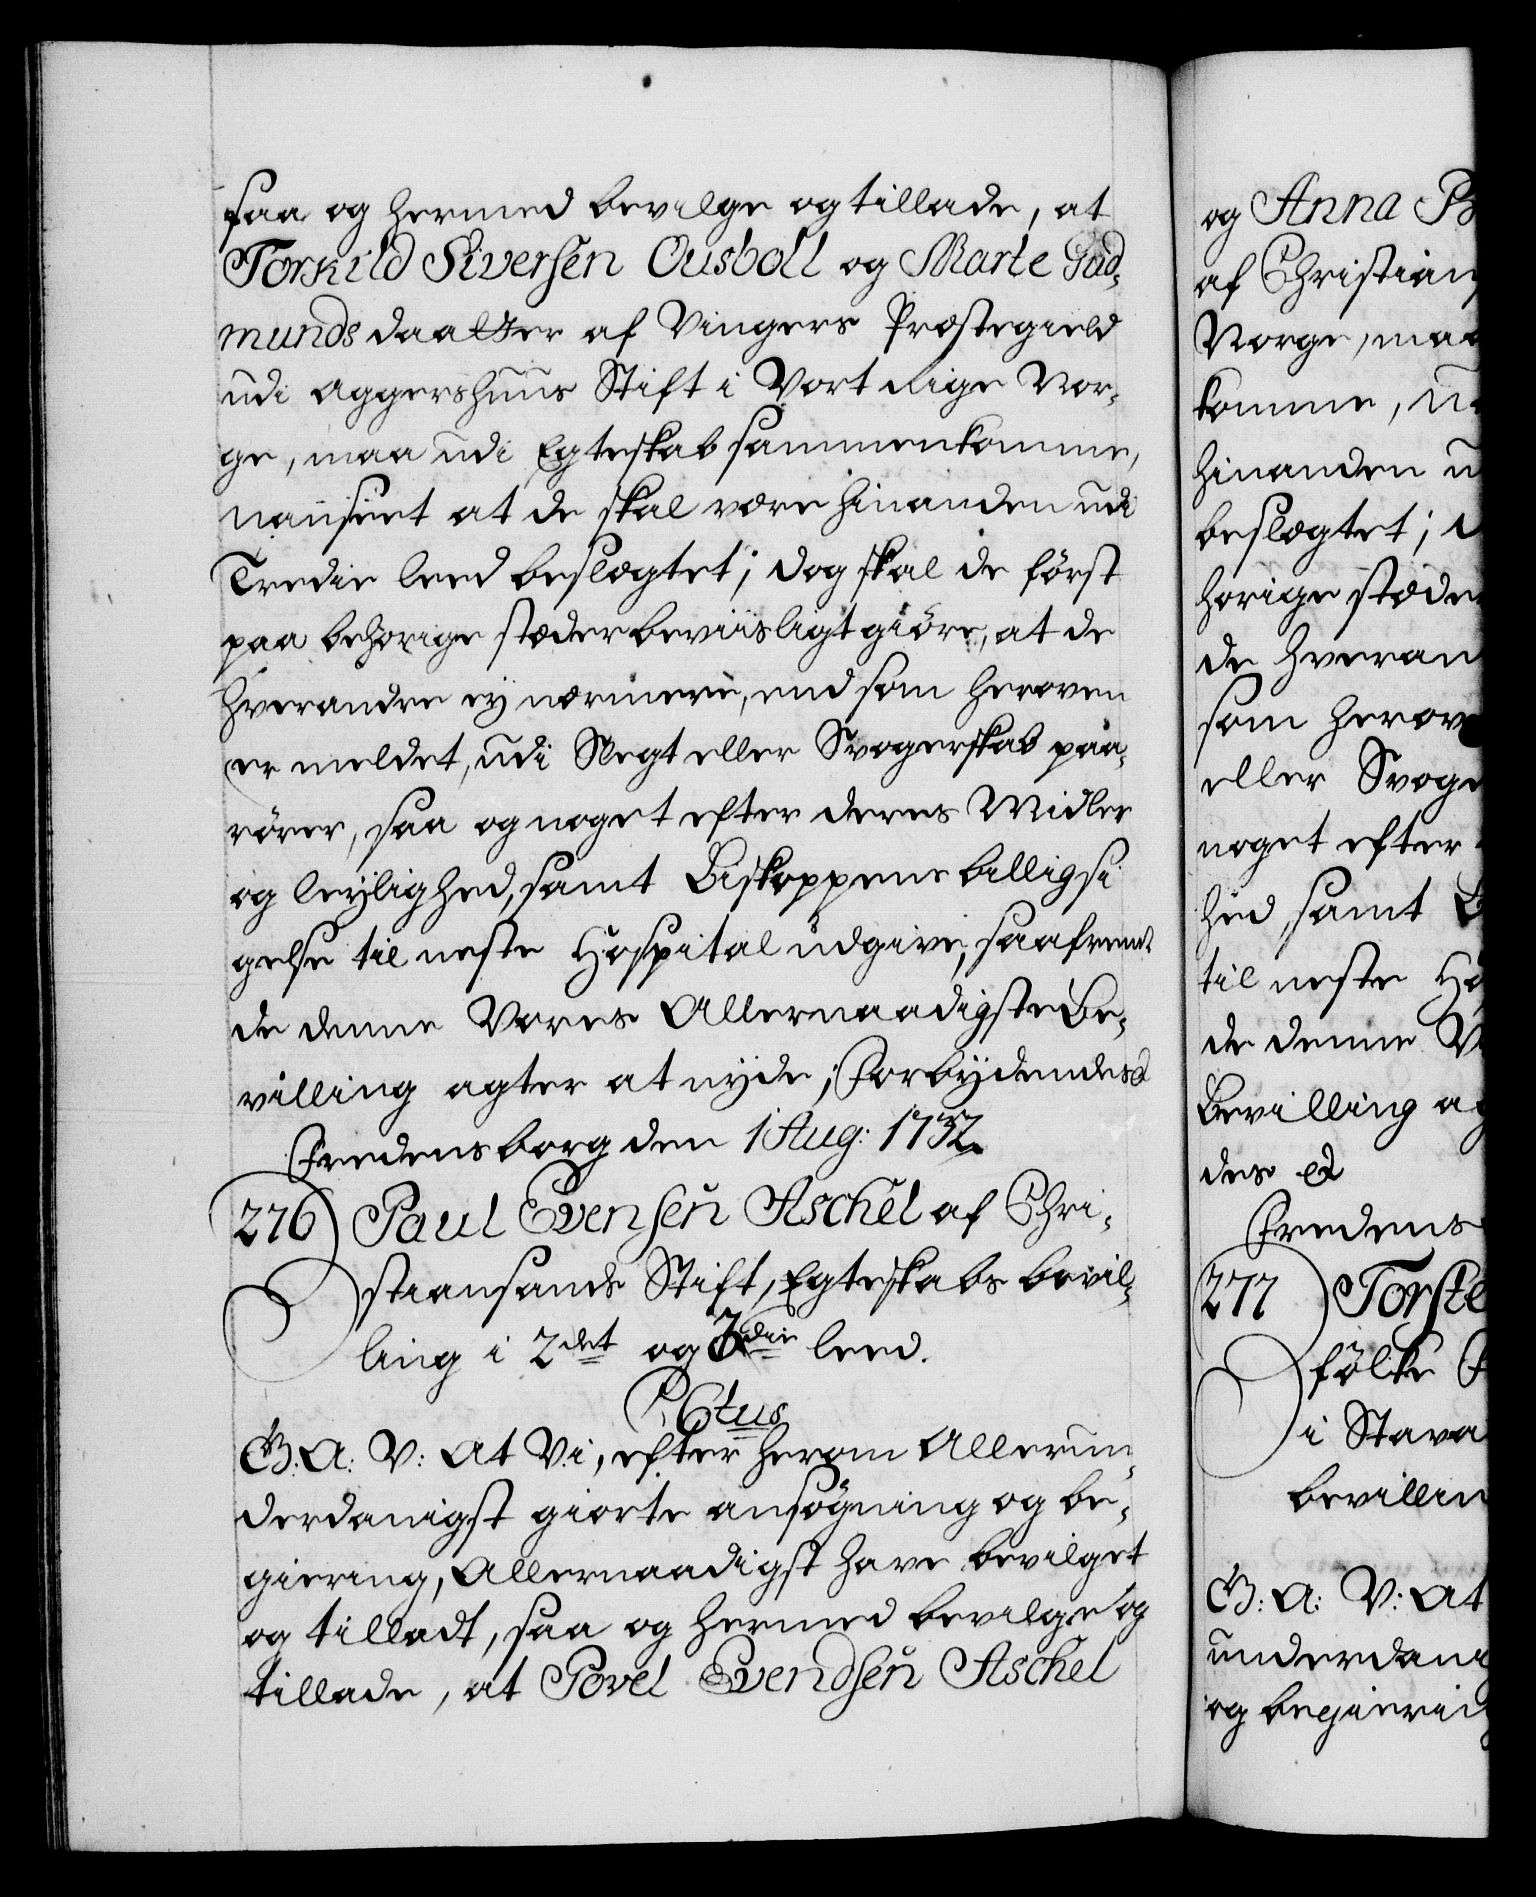 saa og hermed bevilge og tillade, at
Torkild Siversen Ousboll og Marte Gud-
munds daatter af Vingers Præstegield
udi Aggershuus Stift i Vort Rige Nor-
ge, maa udi Egteskab sammenkomme,
uanseet at de skal være hinanden udi
Tredie leed beslægtet; dog skal de först
paa behörige stæder beviisligt giöre, at de
hverandre ey nærmere, end som heroven
er meldet, udi Slegt eller Svogerskab paa-
rörer, saa og noget efter deres Midler
og leylighed, samt Biskoppens billigsi
gelse til neste Hospital udgive, saafremt
de denne Vores Allernaadigste Be-
villing agter at nyde; Forbydendes
Fredensborg den 1 Aug: 1732.
276) Paul Evensen Aschel af Chri-
stiansands Stift, Egteskabs bevil-
ling i 2det og 3die leed.
G: A: V: At Vi, efter herom Allerun-
derdanigst giorte ansögning og be-
giering, Allernaadigst have bevilget
og tilladt, saa og hermed bevilge og
tillade, at Povel Evendsen Aschel
og Anna
af Christian
Norge, maa
komme,
hinanden u
beslægtet;
horige stæde
de hveran
som herov
eller Svoge
noget efter
hed, samt
til neste Ho
de denne V
Bevilling a
des
Fredens
277) Torste
fölke
i Stava
bevillin
G: A: V: At
underdani
og begierin